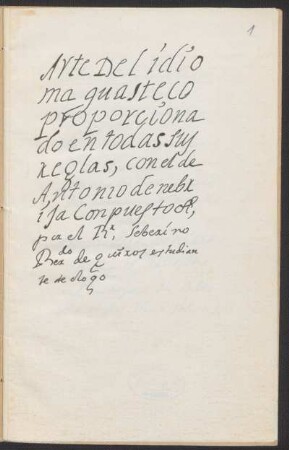 1
Arte Del idio
ma guasteco
proporciona
do en todas sus
reglas, con el de
Antonio de nebr
ija Conpuesto
por el Seberino
de quiros estudian
te